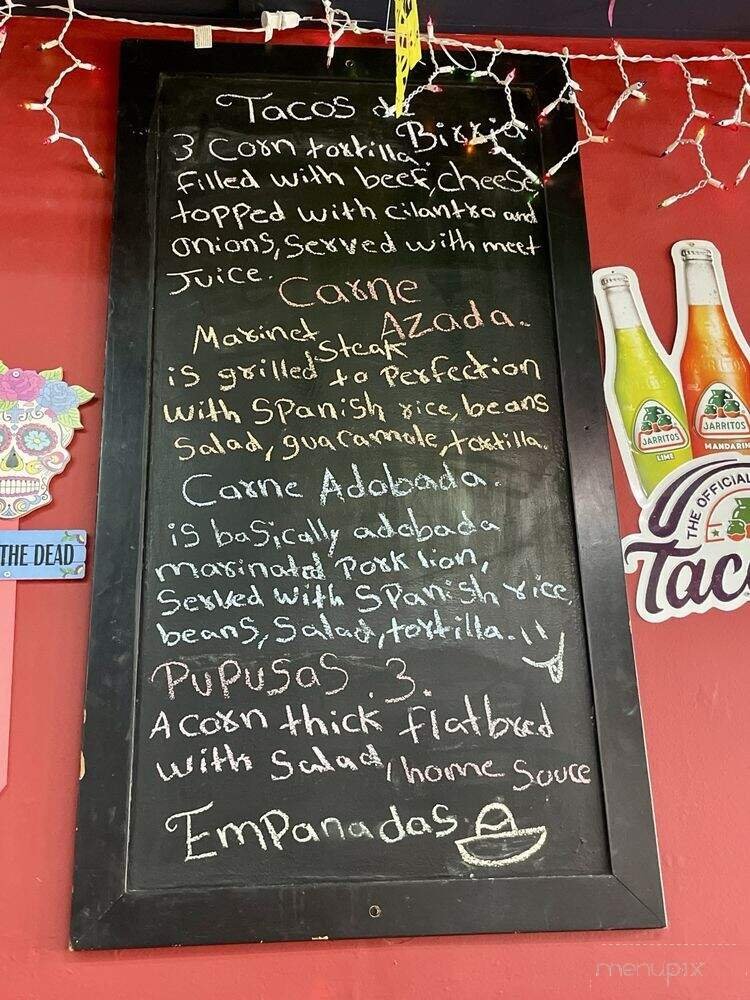 Tacos de
Birria
3 Corn tortilla
filled with beef, cheese
topped with cilantro and
onions, Served with meet
Juice.
Carne
Azada.
Marinet
Steak
is grilled to Perfection
with SPanish rice, beans
Salad, guacamole, tortilla.
Carne Adobada.
is basically adobada
marinated Pork lion,
Served with SPanish rice,
beans, Salad, tortilla.
PuPuSaS .3.
A corn thick flatbred
with Salad, home Souce
EmPanadas
THE DEAD
JARRITOS
LIME
JARRITOS
MANDARIN
THE OFFICIAL
Tac
menupix